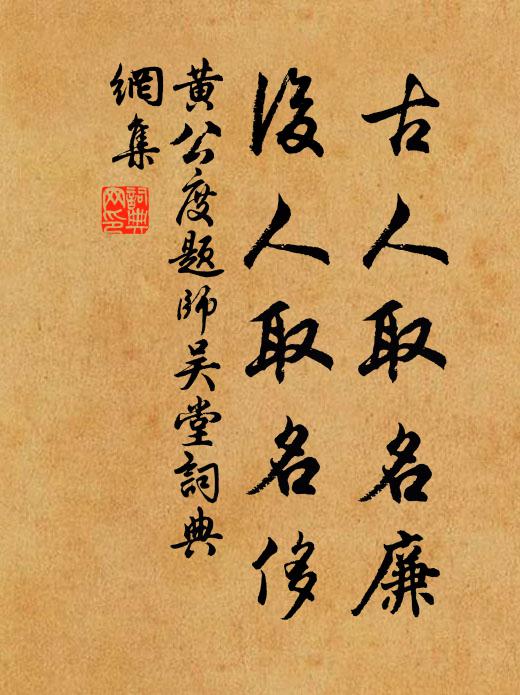 古人取名廉
後人取名侈
黄公度題師吴堂詞典
網集
詞典網印